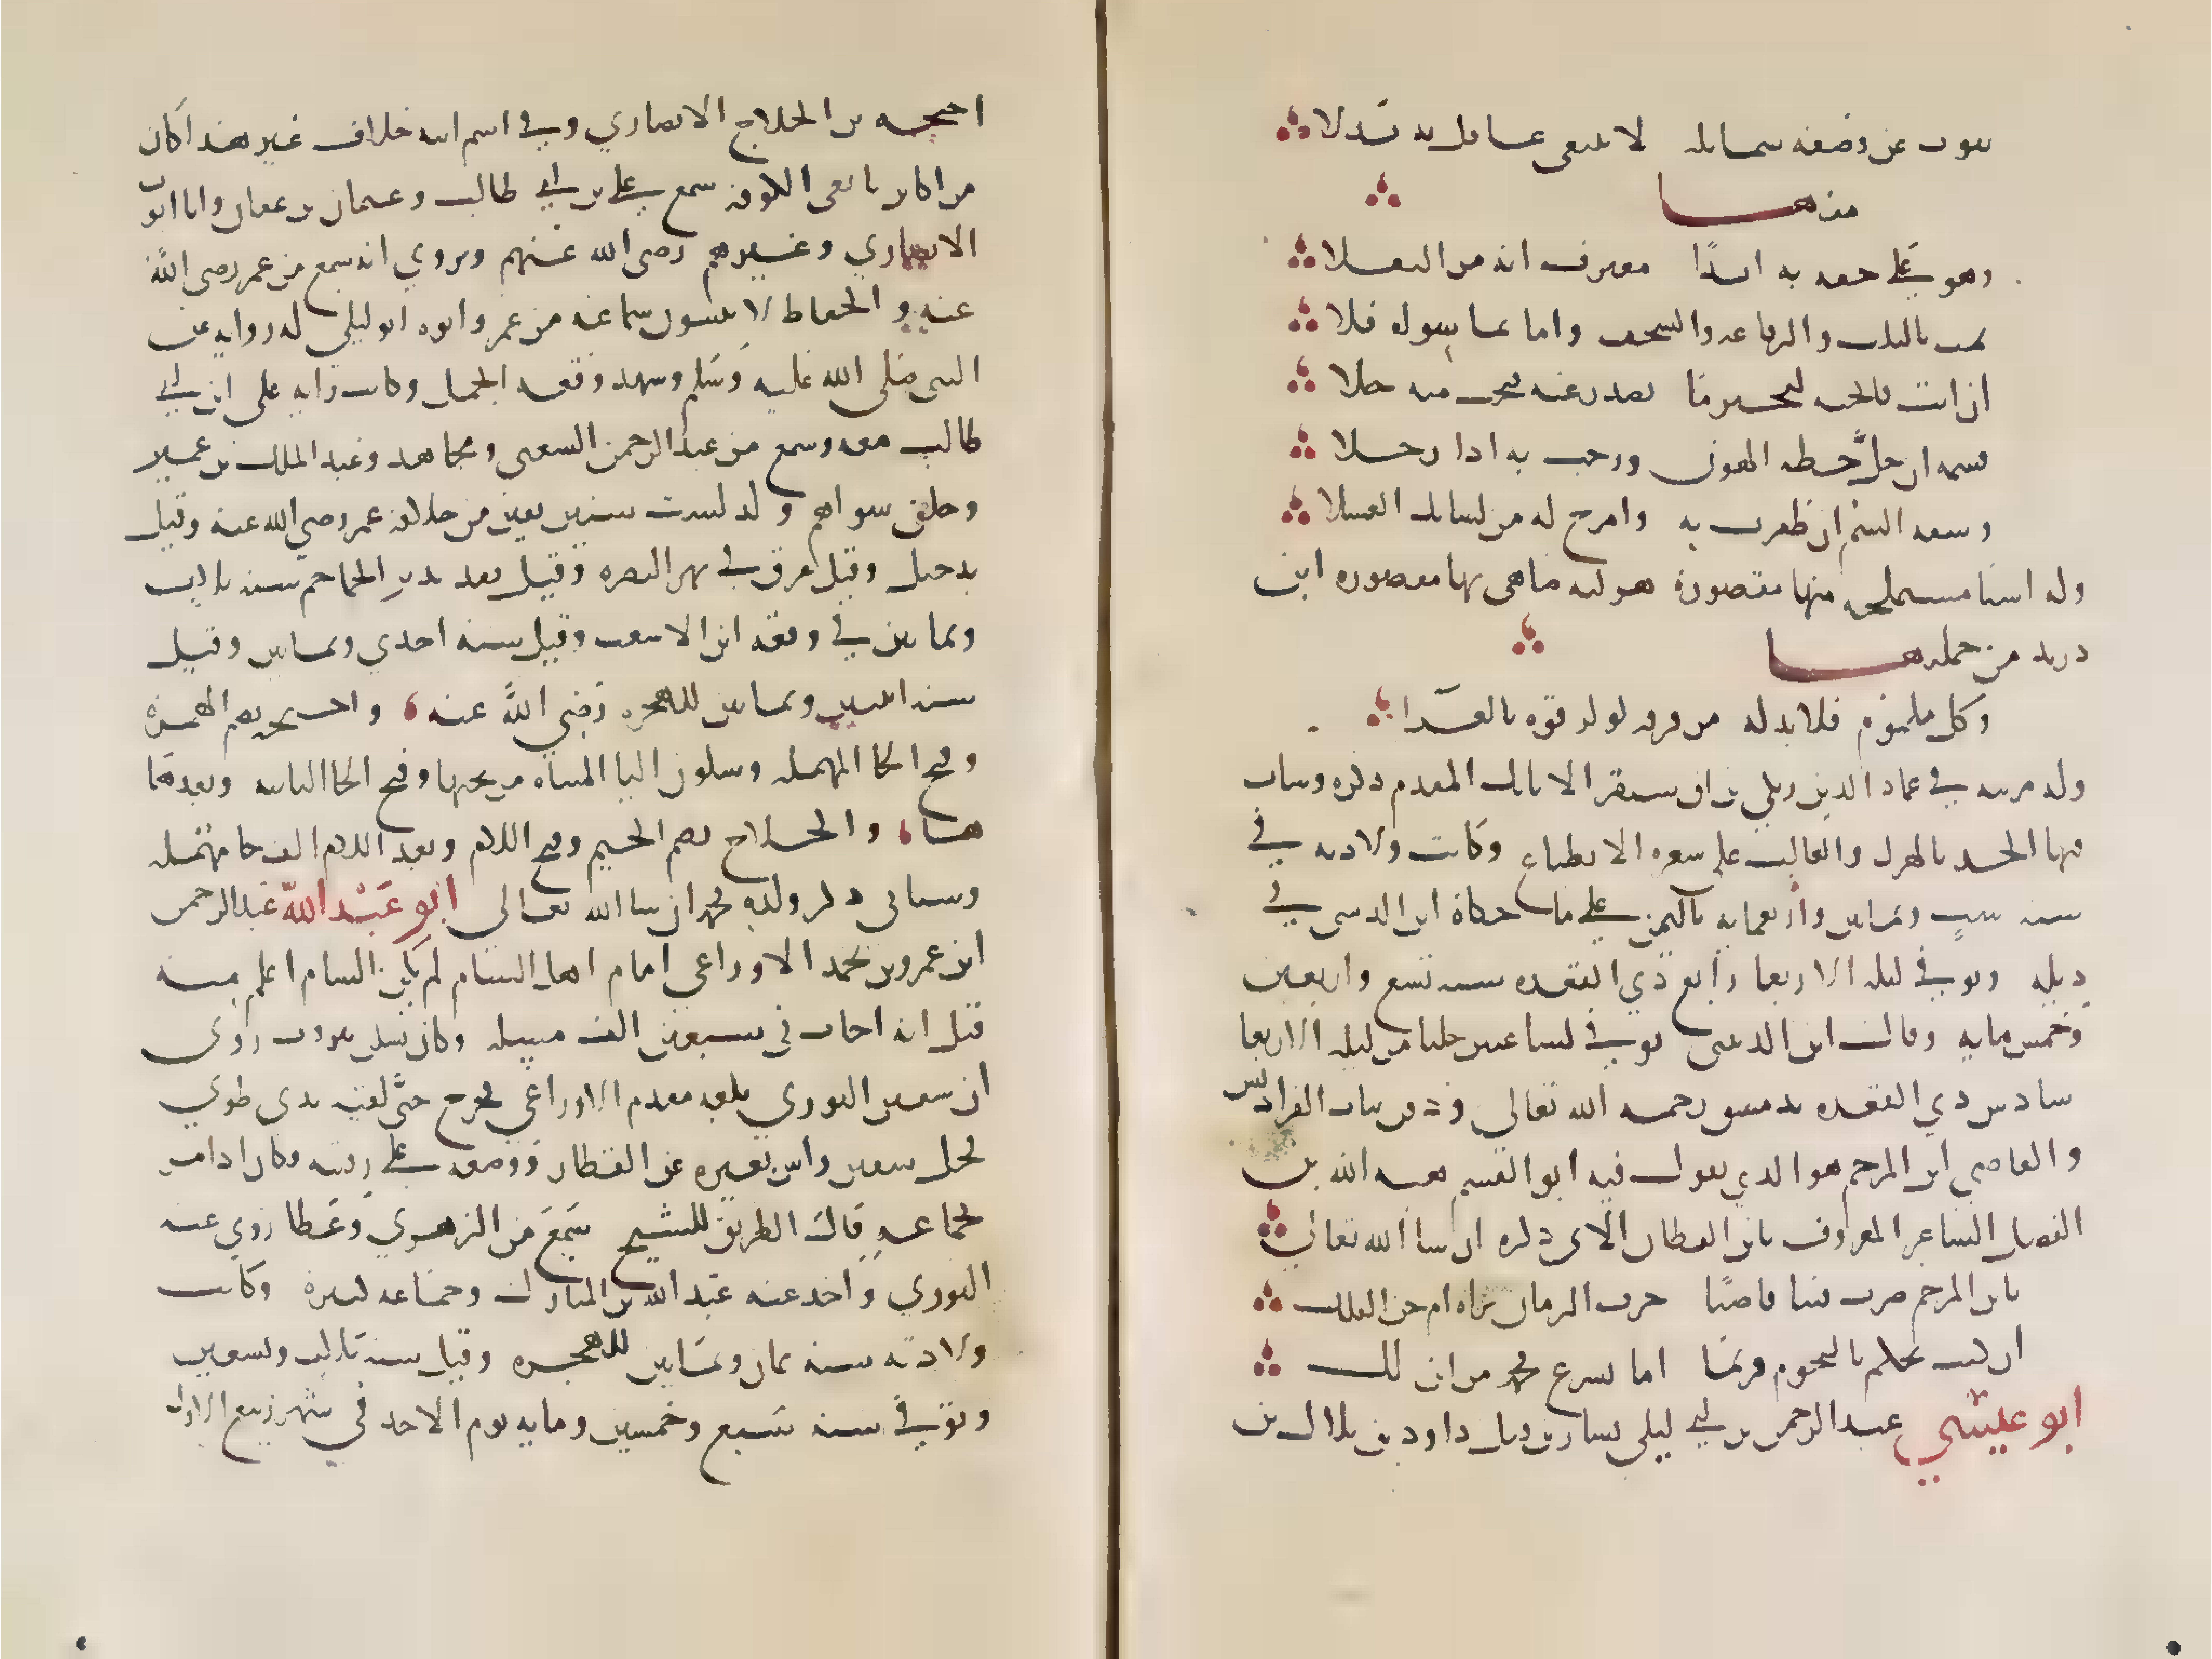 يفوت عن وصفه شمايله لا يبتغي عاقل به بدلا
منها
وهو على خفة به ابدًا معترف انه من الثقلا
يمت بالثلب والرقاعة والسخف واما بما سواه فلا
ان انت فاتحته لتخبر ما يصدر عنه فتحت منه خلا
فسمه ان حل خطه الهون ورحب به اذا رحلا
وسقه السم ان ظفرت به وامزج له من لسانك العسلا
وله اشيا مستملحه منها مقصورة هزليه ضاهى بها مقصوره ابن
دريد من جملتها
وكل ملموم فلا بد له من فرقه لو لزقوه بالغرا
وله مرثيه في عماد الدين زنكي بن اق سنقر الاتابك المقدم ذكره وشاب
فيها الجد بالهزل والغالب على شعره الانطباع وكانت ولادته في
سنه ست وثمانين واربعمايه باليمن على ما حكاه ابن الدبيثي في
ذيله وتوفي ليلة الاربعا رابع ذي القعده سنه تسع واربعين
وخمس مايه وقال ابن الدبيثي توفي لست عشر خلت من ليله الاربعا
سادس ذي القعده بدمشق رحمه الله تعالى ودفن بباب الفراديس
والقاضي ابن المرخم هو الذي يقول فيه ابو القسم هبه الله بن
الفضل الشاعر المعروف بابن القطان الاتي ذكره ان شا الله تعالى
يا بن المرخم صرت فينا قاضيًا خرف الزمان تراه ام جن الفلك
ان كنت تحكم بالنجوم فربما اما بشرع محمد من اين لك
ابو عيسى عبد الرحمن بن ابي ليلى يسار بن وقيل داود بن بلال بن
احيحه بن الجلاح الانصاري وفي اسم ابيه خلاف غير هذا كان
من اكابر تابعي الكوفة سمع علي بن ابي طالب وعثمان بن عفان وابا ايوب
الانصاري وغيرهم رضى الله عنهم ويروي انه سمع من عمر رضى الله
عنه والحفاظ لا يثبتون سماعه من عمر وابوه ابو ليلي له روايه عن
النبى صلى الله عليه وسلم وشهد وقعه الجمل وكانت رايه على ابن ابي
طالب معه وسمع من عبد الرحمن الشعبى ومجاهد وعبد الملك بن عمير
وخلق سواهم ولد لست سنين بقين من خلافة عمر رضي الله عنه وقتل
بدجيل وقيل غرق في نهر البصره وقيل فقد بدير الجماجم سنه ثلاث
وثمانين في وقعه ابن الاشعث وقيل سنه احدي وثمانين وقيل
سنه اثنين وثمانين للهجره رضي الله عنه واحيحه بضم الهمزه
وفتح الحا المهمله وسكون اليا المثناه من تحتها وفتح الحا الثانيه وبعدها
ها والجلاح بضم الجيم وفتح اللام وبعد اللام الف حا مهمله
وسياتى ذكر ولده محمد ان شا الله تعالى ابو عبد الله عبد الرحمن
ابن عمرو بن يحمد الاوزاعي امام اهل الشام لم يكن بالشام اعلم منه
قيل انه اجاب في سبعين الف مسيله وكان يسكن بيروت روى
ان سفين الثوري بلغه مقدم الاوزاعي فخرج حتى لقيه بذي طوي
فحل سفين راس بعيره عن القطار ووضعه على رقبته وكان اذا مر
بجماعه قال الطريق للشيخ سمع من الزهري وعطا روي عنه
الثوري واخذ عنه عبد الله بن المبارك وجماعه كثيرة وكانت
ولادته سنه ثمان وثمانين للهجره وقيل سنه ثلث وتسعين
وتوفي سنه سبع وخمسين ومايه يوم الاحد في شهر ربيع الاول